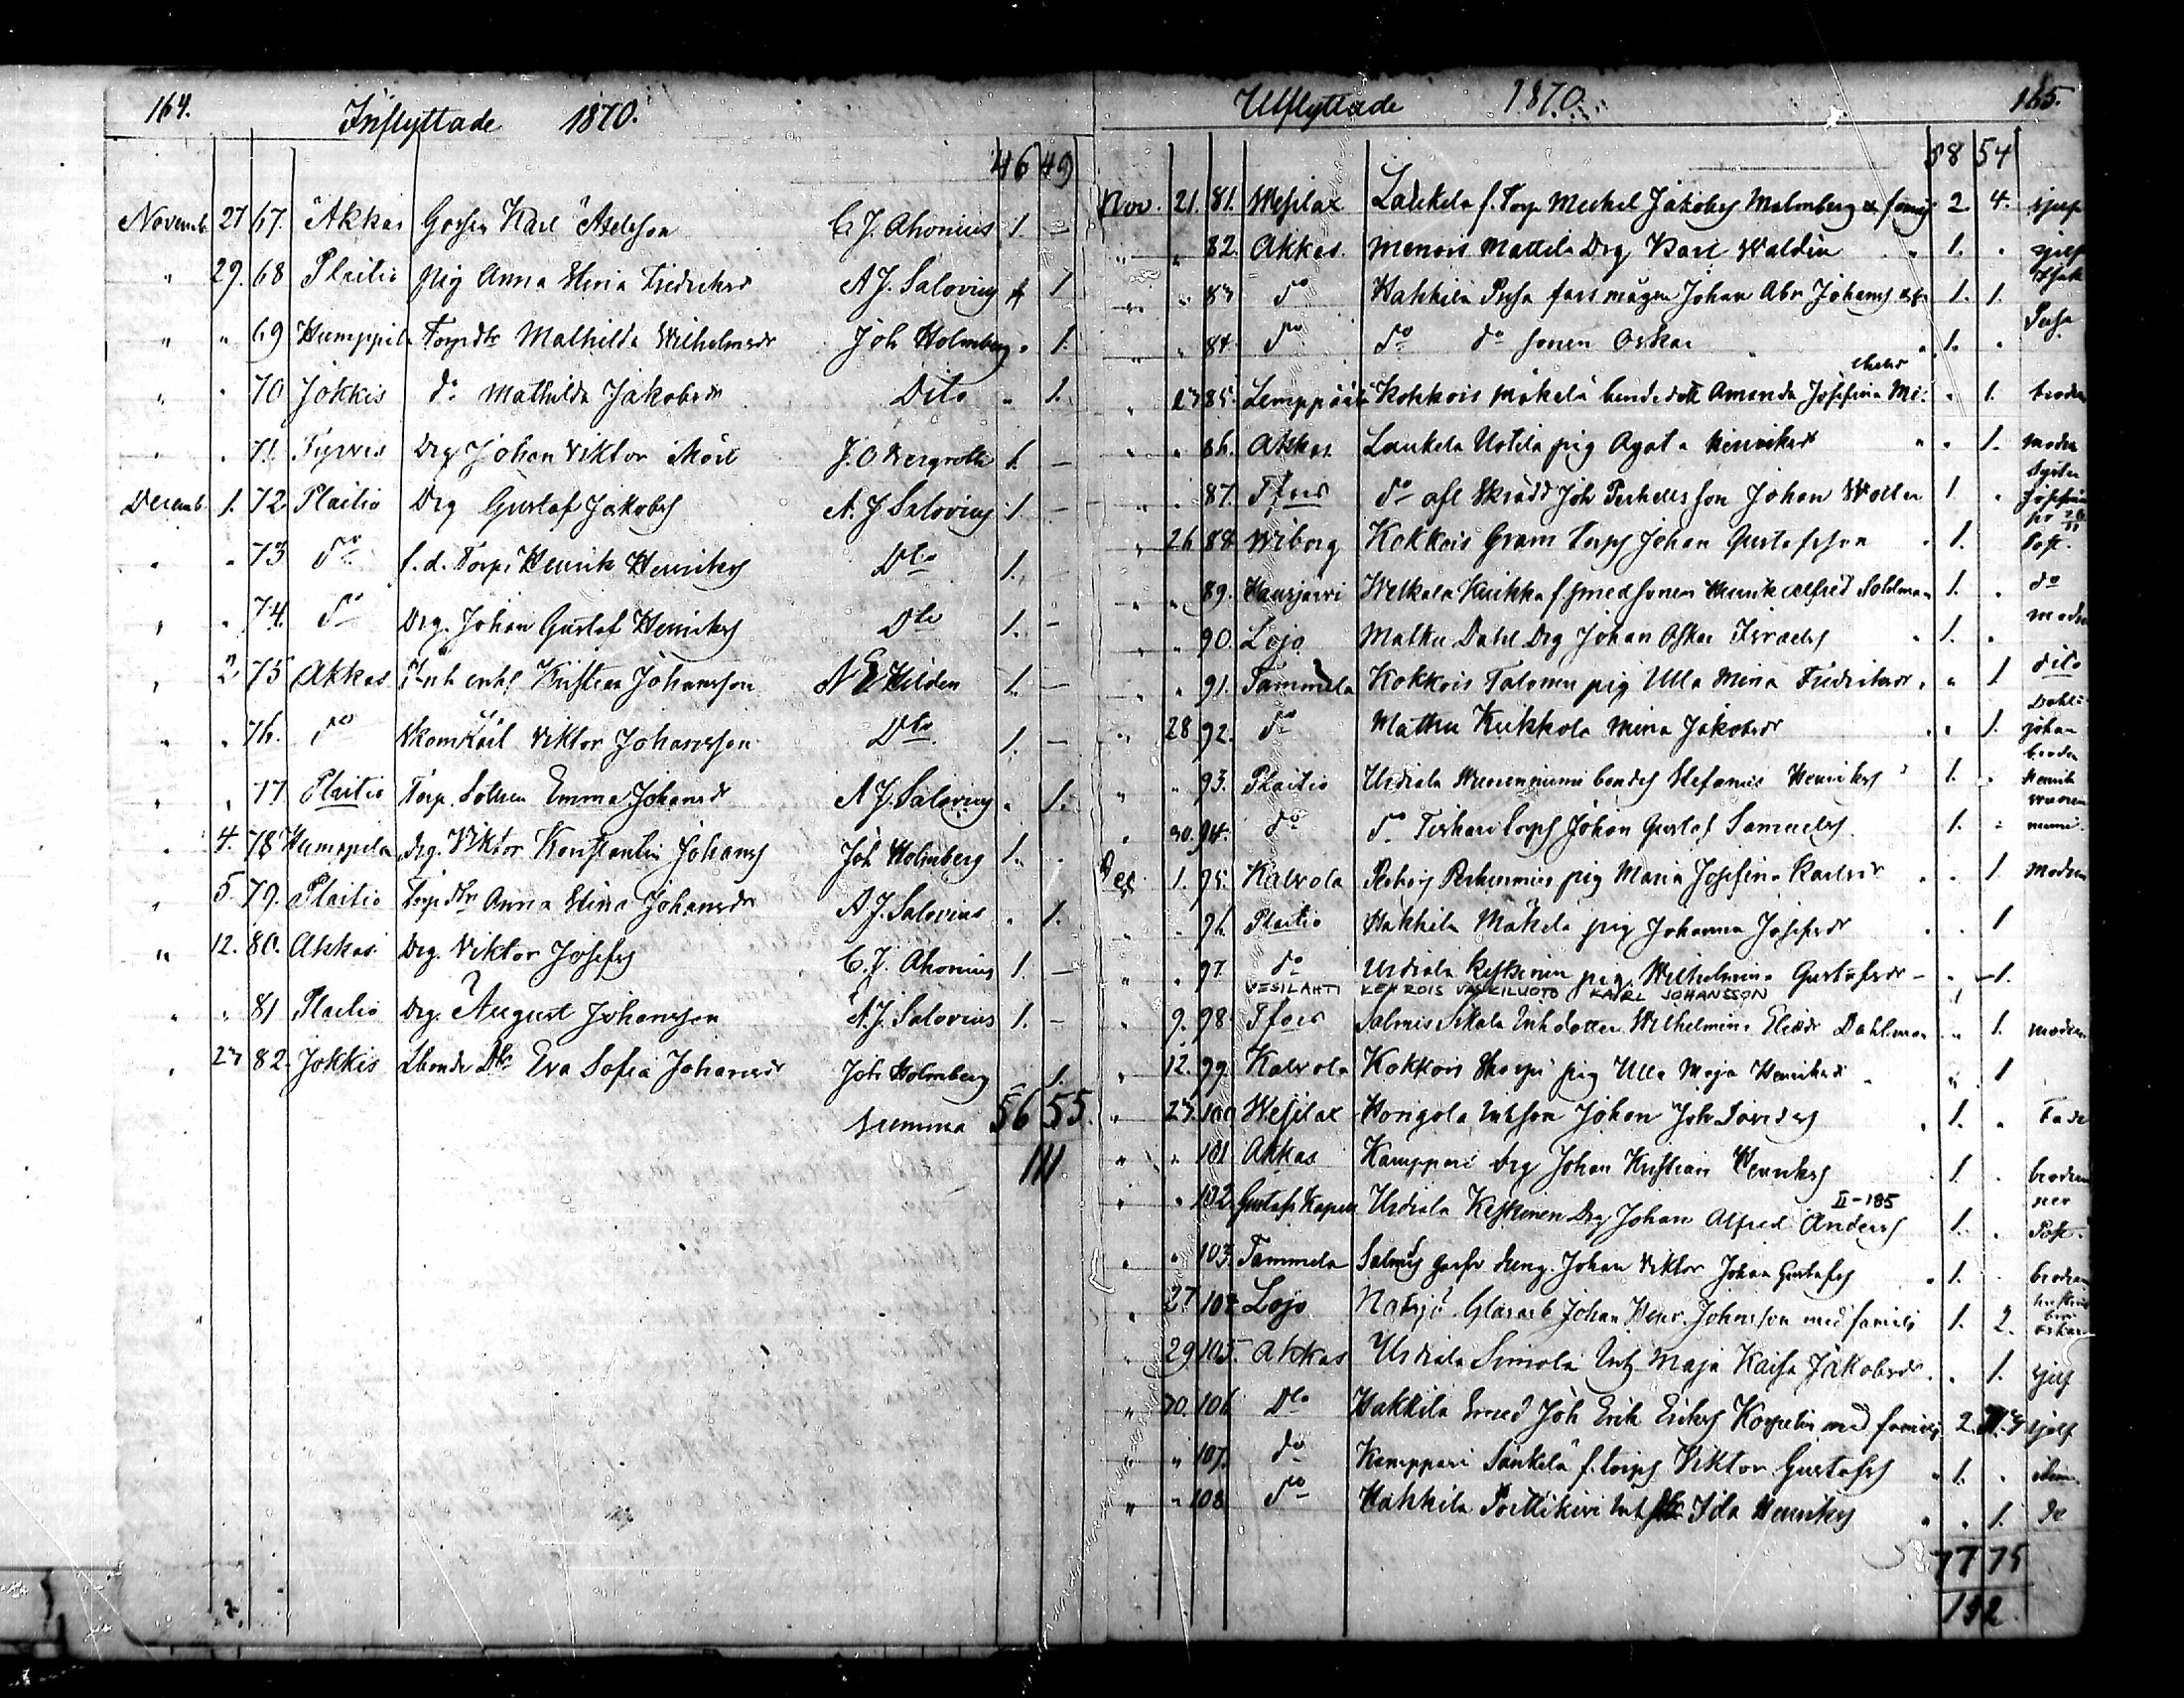 164.
Inflyttade 1870.
46 49
Novemb. 27 67. Akkas Gossen Karl Axelsson C. J. Ahonius 1. –
" 29. 68 Plaitis Pig Anna Stina Fredriksdr A J. Salovius 1
" " 69 Humppila Torpdtr Mathilda Wilhelmsdr Joh Holmberg " 1.
" " 70 Jokkis do Mathilda Jakobsdr Dito " 1.
" " 71. Tyrvis Drg Johan Viktor J. O Bergroth 1. –
Decemb. 1. 72 Plaitis Drg Gustaf Jakobs A. J Salovius 1 –
" " 73 do f. d. Torp. Henrik Henriks Dto 1.
" " 74. do Drg. Johan Gustaf Henriks Dto 1. –
" 2 75 Akkas Kristian Johansson Hilden 1. –
" " 76. do Karl Viktor Johansson Dto 1. –
" " 77 Plaitis Torp. Emma Johansdr A J. Salovius " 1.
" 4. 78 Humppila Drg. Viktor Konstantin Johans Joh Holmberg 1. .
" 5. 79. Plaitis Torpdtr Anna Stina Johansdr A J. Salovius . 1.
" 12. 80. Akkas Drg. Viktor Josefs C. J. Ahonius 1. –
" " 81 Plaitis Drg. August Johansson A. J. Salovius 1. –
" 23 82. Jokkis Dtr Eva Sofia Johansdr Joh Holmberg 1.
Summa 56 55.
111
Utflyttade 1870. 165.
58 54
Nov. 21. 81. Wesilax Laukela f. Torp Mickel Jakobs Malmberg 2. 4. sjelf
" " 82. Akkas. Menois Mattila Drg Karl Waldin " 1. . sjelf
" " 83 do Hakkila Johan Abr Johans 1. 1.
" " 84. do do do sonen Oskar " 1. .
" 23 85. Lemppäälä Kokkois Mäkelä bondedotr Amanda Josefina Mi: " 1. broden
" " 86. Akkas. Laukela Uotila pig Agata Henriksdr " " 1. modren
" " 87. Tfors do Johan 1 .
" 26 88. Wiborg Kokkois Gram torps Johan Gustafsson " 1. Post.
" " 89. Hausjärvi Kuikka f smedsonen Henrik Alfred 1. . do
" " 90. Lojo Matku Dahl Drg Johan Oskar Israels " 1. . modren
" " 91. Tammela Kokkois Talonen pig Ulla Mina Fredriksdr " " 1 dito
" 28 92. do Matku Kukkola Mina Jakobsdr " " 1. Johan
" " 93. Plaitis Urdiala bondes Stefanus Henriks 1. . Henrik
" 30. 94. do do torps Johan Gustaf Samuels 1. .
Dec 1. 95. Kalvola pig Maria Josefina Karlsdr . . 1. Modren
" " 96. Plaitis Hakkila Mäkelä pig Johanna Josefsdr . . 1
" " 97. do Urdiala Keskinen pig. Wilhelmina Gustafsdr – . – 1.
VESILAHTI KEHROIS VASKILUOTO KARL JOHANSSON
" 9. 98 Tfors Salmis Sikala Inh dotter Wilhelmina Dahlman " " 1. modren
" 12. 99. Kalvola Kokkois pig Ulla Maja Henriksdr " " 1
" 23. 100 Wesilax Hongola Inhson Johan Joh " 1. . Fadr
" " 101 Akkas Kamppari Drg Johan Kristian Henriks . 1. . brodren
" " 102 Gustafs Kapell Urdiala Keskinen Drg Johan Alfred Anders II-185 1. . Post.
" " 103. Tammela Salmis Johan Viktor Johan Gustafs " 1. . brodren
" 27 104 Lojo Notsjö Glasarb Johan Henr. Johansson med familj 1. 2.
" 29 105. Akkas Urdiala Simola Inh Maja Kaisa Jakobsdr . . 1. sjelf
" 30. 106. Dto Hakkila Smed Joh Erik Eriks med familj 2. 4 sjelf
" " 107. do Kamppari f. torps Viktor Gustafs " 1. .
" " 108. do Hakkila Inh Ida Henriks " . 1. do
77 75
152.